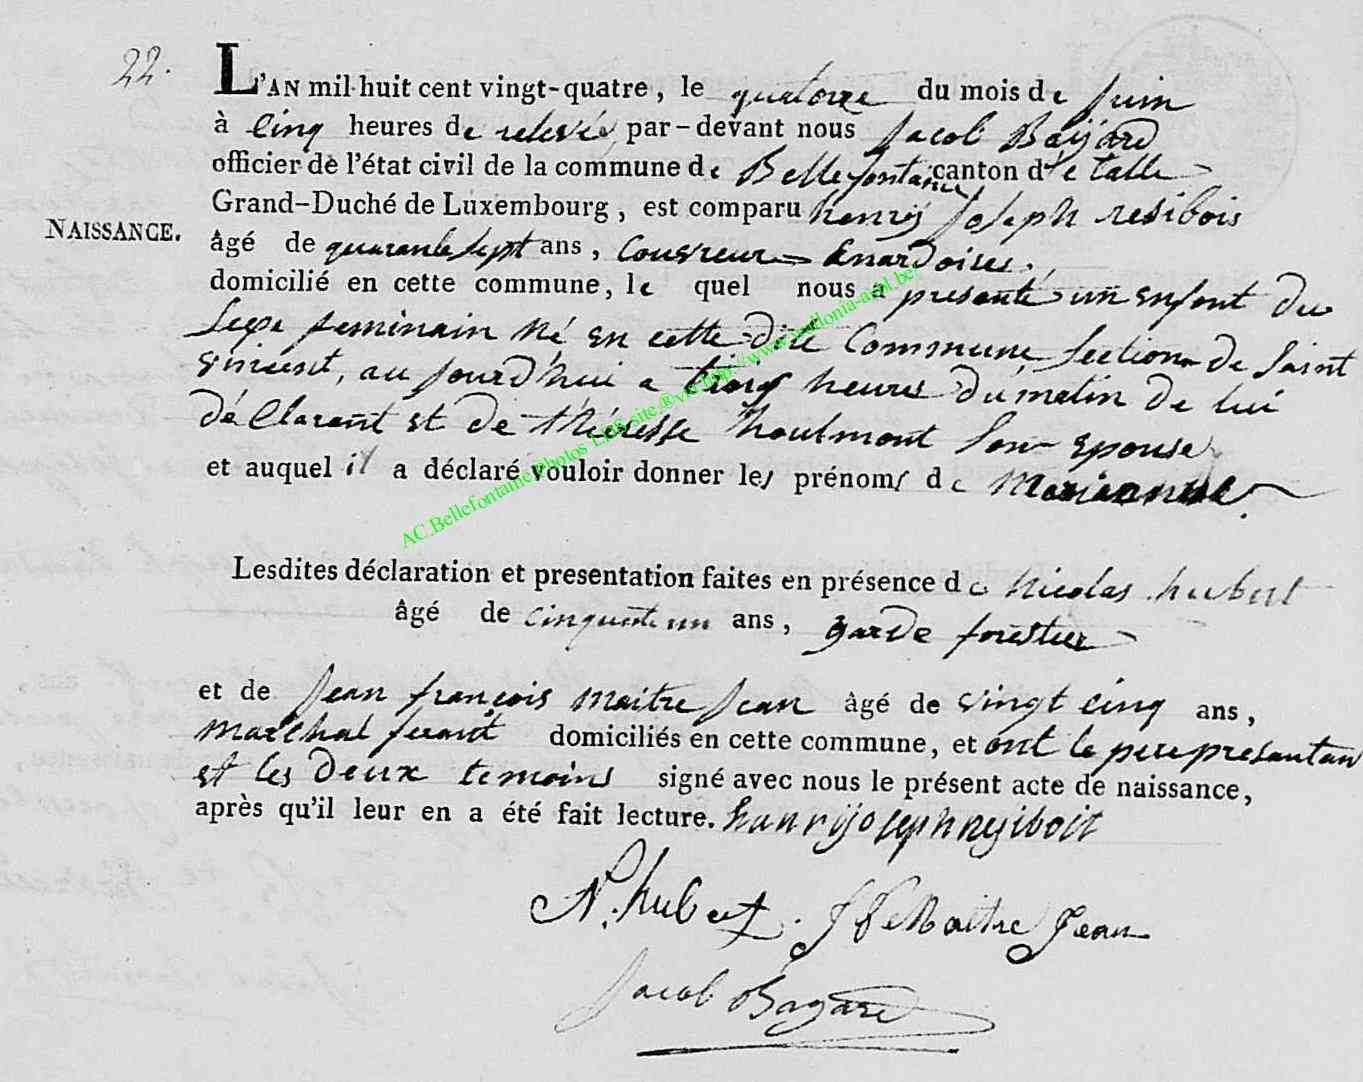 22.
L'AN mil huit cent vingt-quatre, le quatorze du mois de Juin
à Cinq heures de relevée, par-devant nous Jacob Baijard
officier de l'état civil de la commune de Bellefontaine canton d'Etalle
Grand-Duché de Luxembourg, est comparu henrij Joseph resibois
NAISSANCE.
âgé de quarante sept ans, Couvreur Enardoises,
domicilié en cette commune, le quel nous a presenté un enfant du
Sexe feminain né en cette dite Commune Section de Saint
vincent, au jourd'hui a Cinq heures du matin de lui
déClarant et de théresse houlmont Son epouse
et auquel il a déclaré vouloir donner les prénoms de Marianne.
AC.Bellefontaine.Photos site ® via http://www.wallonia-asbl.be/
Lesdites déclaration et presentation faites en présence de Nicolas hubert
âgé de cinquante un ans, garde forestier
et de Jean françois maitre Jean âgé de vingt cinq ans,
maréchal ferant domiciliés en cette commune, et ont le pere presantan
et les deux temoins signé avec nous le présent acte de naissance,
après qu'il leur en a été fait lecture. hanrijoseph resiboit
N. hubert. J f Maitre Jean
Jacob Bayard